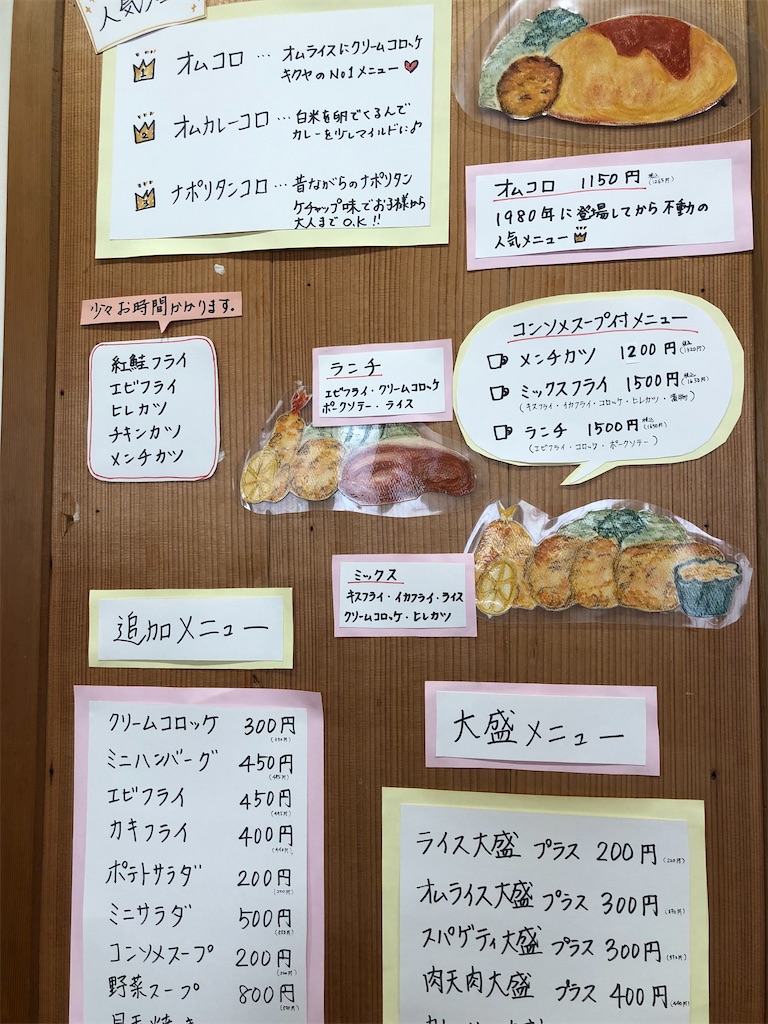 人気
1 オムコロ … オムライスにクリームコロッケ
キクヤのNo1メニュー♥
2 オムカレーコロ … 白米を卵でくるんで
カレーを少しマイルドに♪
3 ナポリタンコロ … 昔ながらのナポリタン
ケチャップ味でお子様から
大人までO.K!!
オムコロ 1150円 税込(1265円)
1980年に登場してから不動の
人気メニュー
少々お時間かかります。
紅鮭フライ
エビフライ
ヒレカツ
チキンカツ
メンチカツ
ランチ
エビフライ・クリームコロッケ
ポークソテー・ライス
コンソメスープ付メニュー
メンチカツ 1200円 税込(1320円)
ミックスフライ 1500円 税込(1650円)
(キスフライ・イカフライ・コロッケ・ヒレカツ・)
ランチ 1500円 税込(1650円)
(エビフライ・コロッケ・ポークソテー)
ミックス
キスフライ・イカフライ・ライス
クリームコロッケ・ヒレカツ
追加メニュー
クリームコロッケ 300円 (330円)
ミニハンバーグ 450円 (495円)
エビフライ 450円 (495円)
カキフライ 400円 (440円)
ポテトサラダ 200円 (220円)
ミニサラダ 500円 (550円)
コンソメスープ 200円 (220円)
野菜スープ 800円
大盛メニュー
ライス大盛 プラス 200円 (220円)
オムライス大盛 プラス 300円 (330円)
スパゲティ大盛 プラス 300円 (330円)
肉天肉大盛 プラス 400円 (440円)